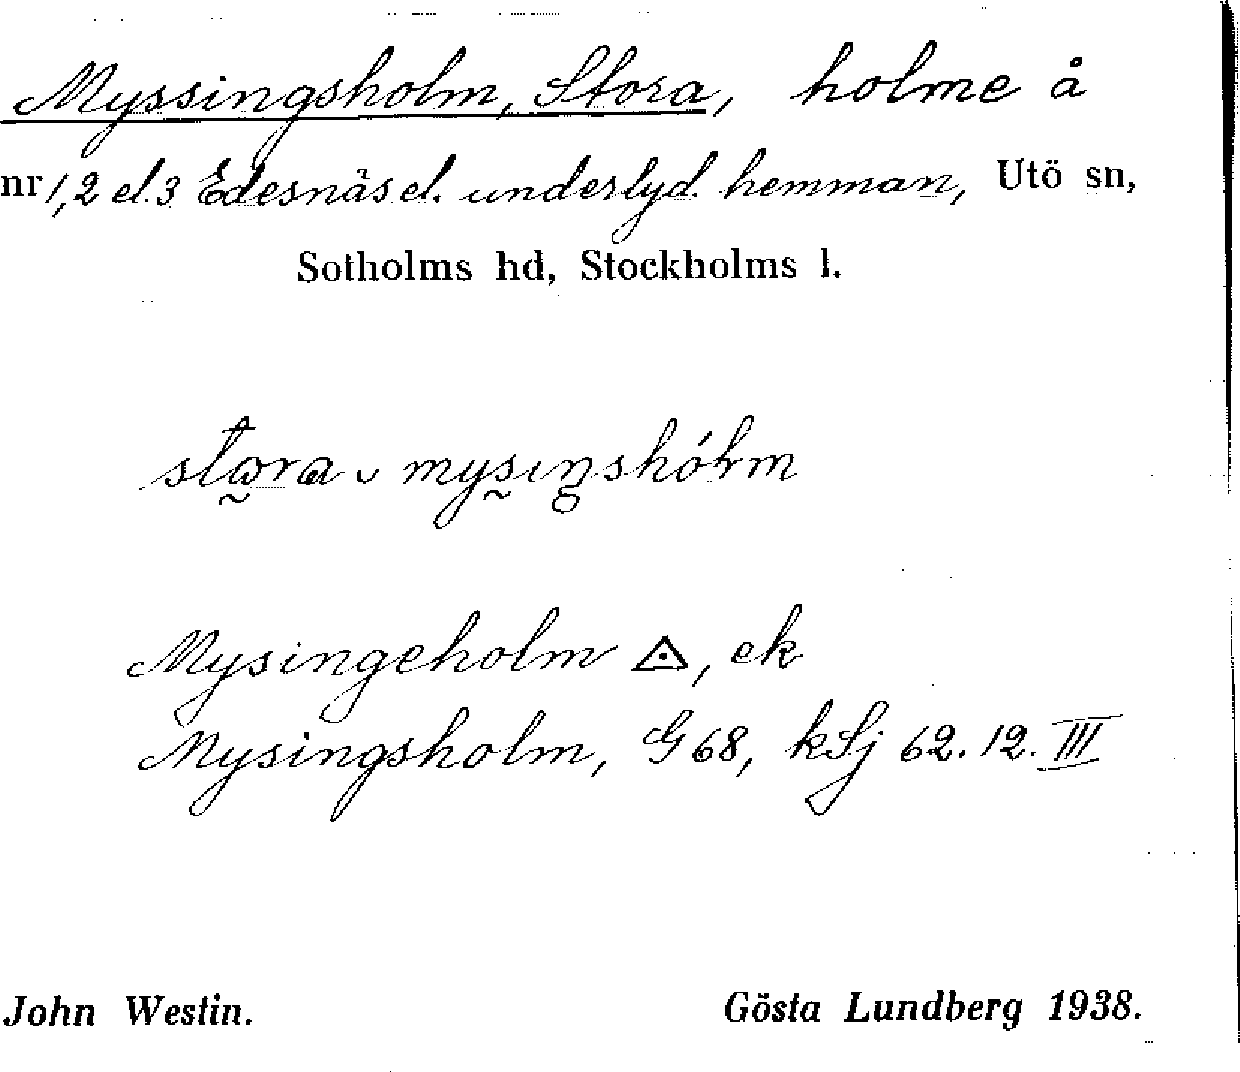 Myssingsholm, Stora, holme å
nr 1,2 el. 3 Edesnäs el. underlyd. hemman, Utö sn,
Sotholms hd, Stockholms l.
Mysingeholm ⟁, ek
Mysingsholm, G 68, kSj 62. 12. III
John Westin. Gösta Lundberg 1938.